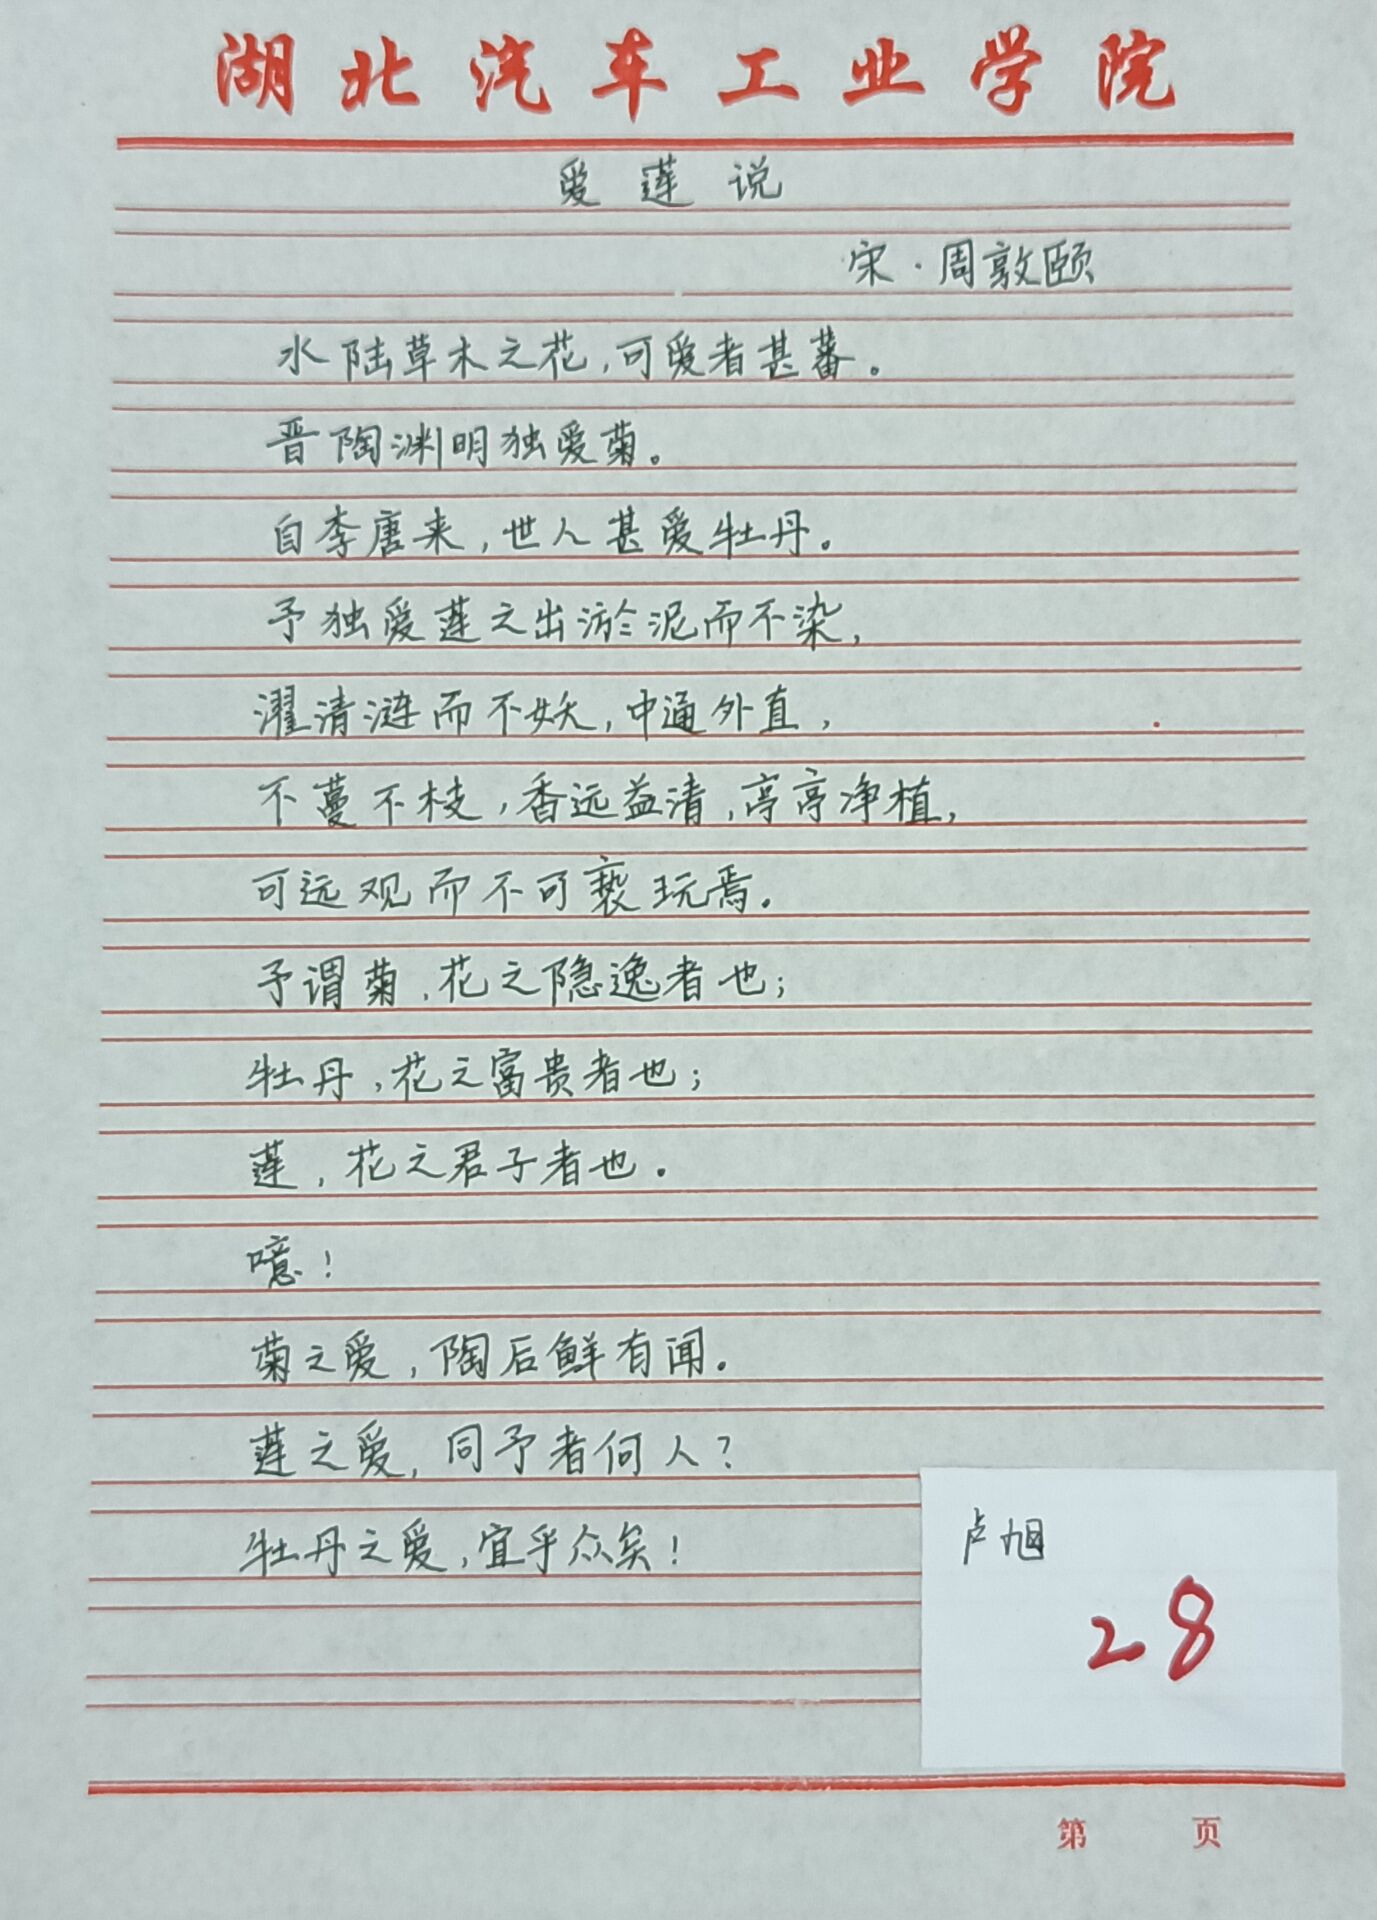 湖北汽车工业学院
爱莲说
宋·周敦颐
水陆草木之花,可爱者甚蕃。
晋陶渊明独爱菊。
自李唐来,世人甚爱牡丹。
予独爱莲之出淤泥而不染,
濯清涟而不妖,中通外直,
不蔓不枝,香远益清,亭亭净植,
可远观而不可亵玩焉。
予谓菊,花之隐逸者也;
牡丹,花之富贵者也;
莲,花之君子者也。
噫!
菊之爱,陶后鲜有闻。
莲之爱,同予者何人?
牡丹之爱,宜乎众矣!
卢旭
28
第 页